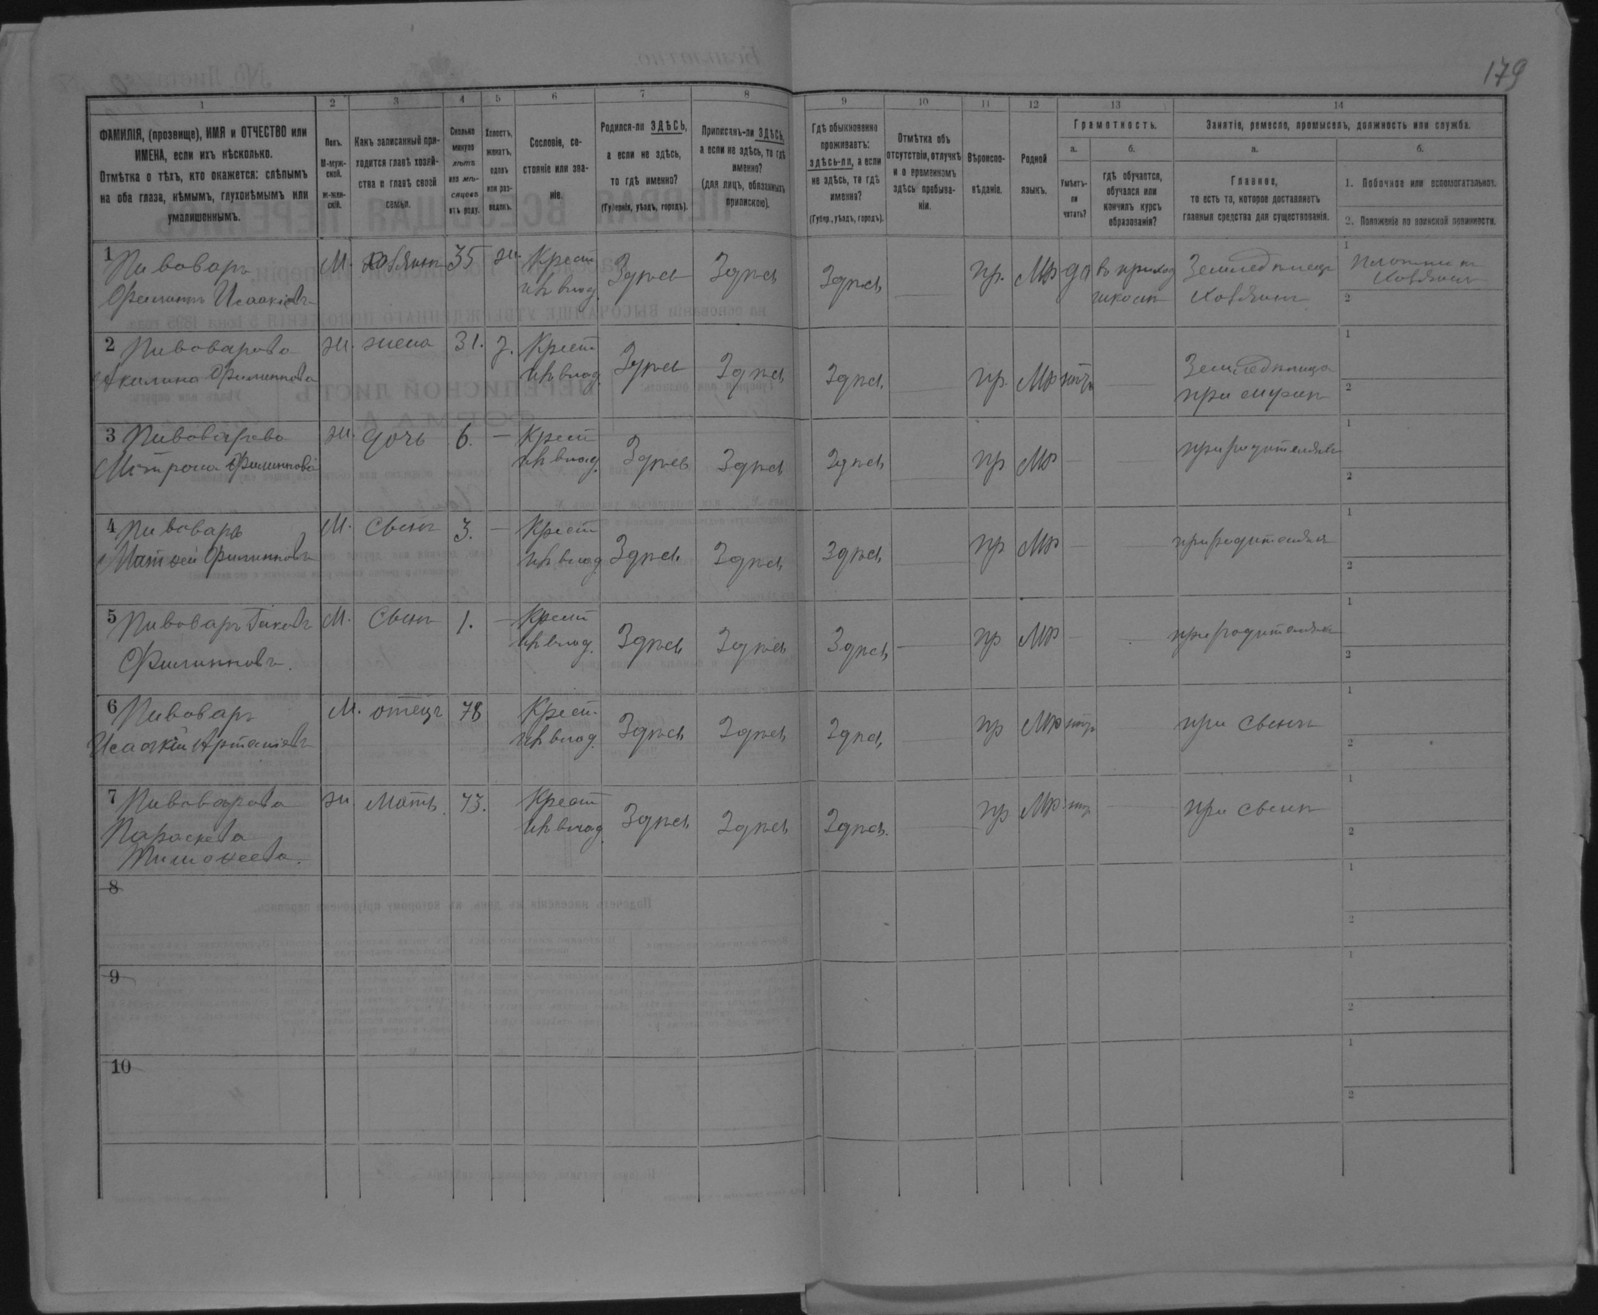 179
1 2 3 4 5 6 7 8 9 10 11 12 13 14
ФАМИЛІЯ, (прозвище), ИМЯ и ОТЧЕСТВО или
ИМЕНА, если ихъ нѣсколько.
Отмѣтка о тѣхъ, кто окажется: слѣпымъ
на оба глаза, нѣмымъ, глухонѣмымъ или
умалишеннымъ.
Полъ.
М-муж-
ской.
Ж-жен-
скій.
Какъ записанный при-
ходится главѣ хозяй-
ства и главѣ своей
семьи.
Сколько
минуло
лѣтъ
или мѣ-
сяцевъ
отъ роду.
Холостъ,
женатъ,
вдовъ
или раз-
веденъ.
Сословіе, со-
стояніе или зва-
ніе.
Родился-ли ЗДѢСЬ,
а если не здѣсь,
то гдѣ именно?
(Губернія, уѣздъ, городъ).
Приписанъ-ли ЗДѢСЬ,
а если не здѣсь, то гдѣ
именно?
(для лицъ, обязанныхъ
припискою).
Гдѣ обыкновенно
проживаетъ:
здѣсь-ли, а если
не здѣсь, то гдѣ
именно?
(Губер., уѣздъ, городъ).
Отмѣтка объ
отсутствіи, отлучкѣ
и о временномъ
здѣсь пребыва-
ніи.
Вѣроиспо-
вѣданіе.
Родной
языкъ.
Грамотность.
а.
Умѣетъ-
ли
читать?
б.
гдѣ обучается,
обучался или
кончилъ курсъ
образованія?
Занятіе, ремесло, промыселъ, должность или служба.
а.
Главное,
то есть то, которое доставляетъ
главныя средства для существованія.
б.
1. Побочное или вспомогательное.
2. Положеніе по воинской повинности.
1 Пивоваръ
Филиппъ Исаакіевъ
М. хозяинъ 35 ж. Крест
Здѣсь Здѣсь Здѣсь
пр. Мр да въ приход
школѣ
Земледѣлецъ
хозяинъ
1
Плотникъ
хозяинъ
2
2 Пивоварова
Акилина Филиппова
ж. жена 31. з. Крест
Здѣсь Здѣсь Здѣсь
пр Мр нѣтъ
Земледѣлица
при мужѣ
1
2
3 Пивоварова
Матрона Филиппова
ж. дочь 6. — Крест
Здѣсь Здѣсь Здѣсь
пр Мр
при родителяхъ
1
2
4 Пивоваръ
Матѳей Филипповъ
М. сынъ 3. — Крест
Здѣсь Здѣсь Здѣсь
пр Мр
при родителяхъ
1
2
5 Пивоваръ Іаковъ
Филипповъ.
М. сынъ 1. — Крест
Здѣсь Здѣсь Здѣсь
пр Мр
при родителяхъ
1
2
6 Пивоваръ
Исаакій
М. отецъ 78 Крест
Здѣсь Здѣсь Здѣсь
пр Мр нѣтъ
при сынѣ
1
2
7 Пивоварова
Параскева
Тимоѳеева.
ж мать 73. Крест
Здѣсь Здѣсь Здѣсь
пр Мр нѣтъ
при сынѣ
1
2
8
1
2
9
1
2
10
1
2